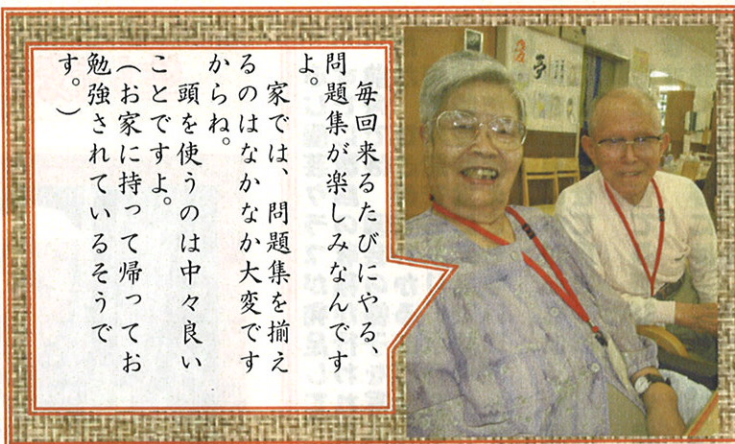 毎回来るたびにやる、
問題集が楽しみなんです
よ。
家では、問題集を揃え
るのはなかなか大変です
からね。
頭を使うのは中々良い
ことですよ。
（お家に持って帰ってお
勉強されているそうで
す。）